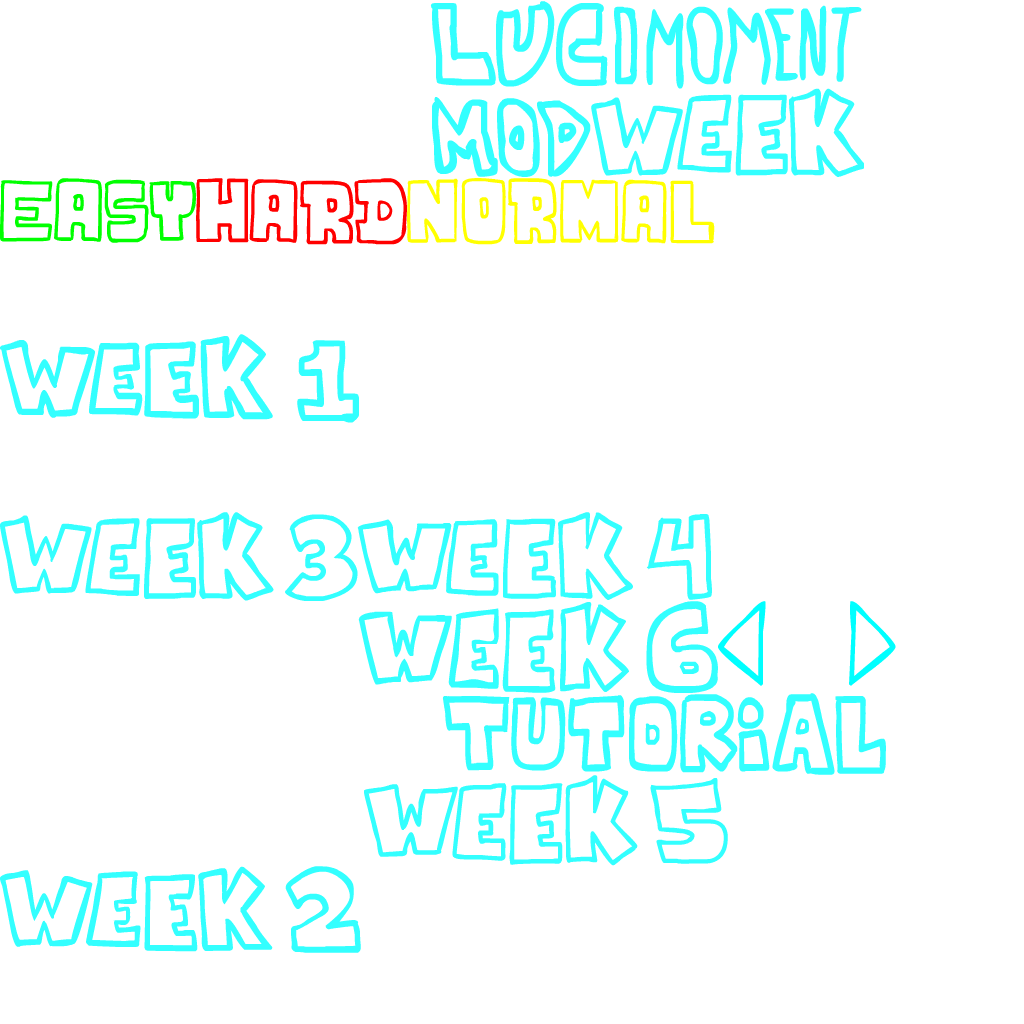 LUCIMOMENT
MODWEEK
EASYHARDNORMAL
WEEK 1
WEEK 3WEEK 4
WEEK 6
TUTORiAL
WEEK 5
WEEK 2